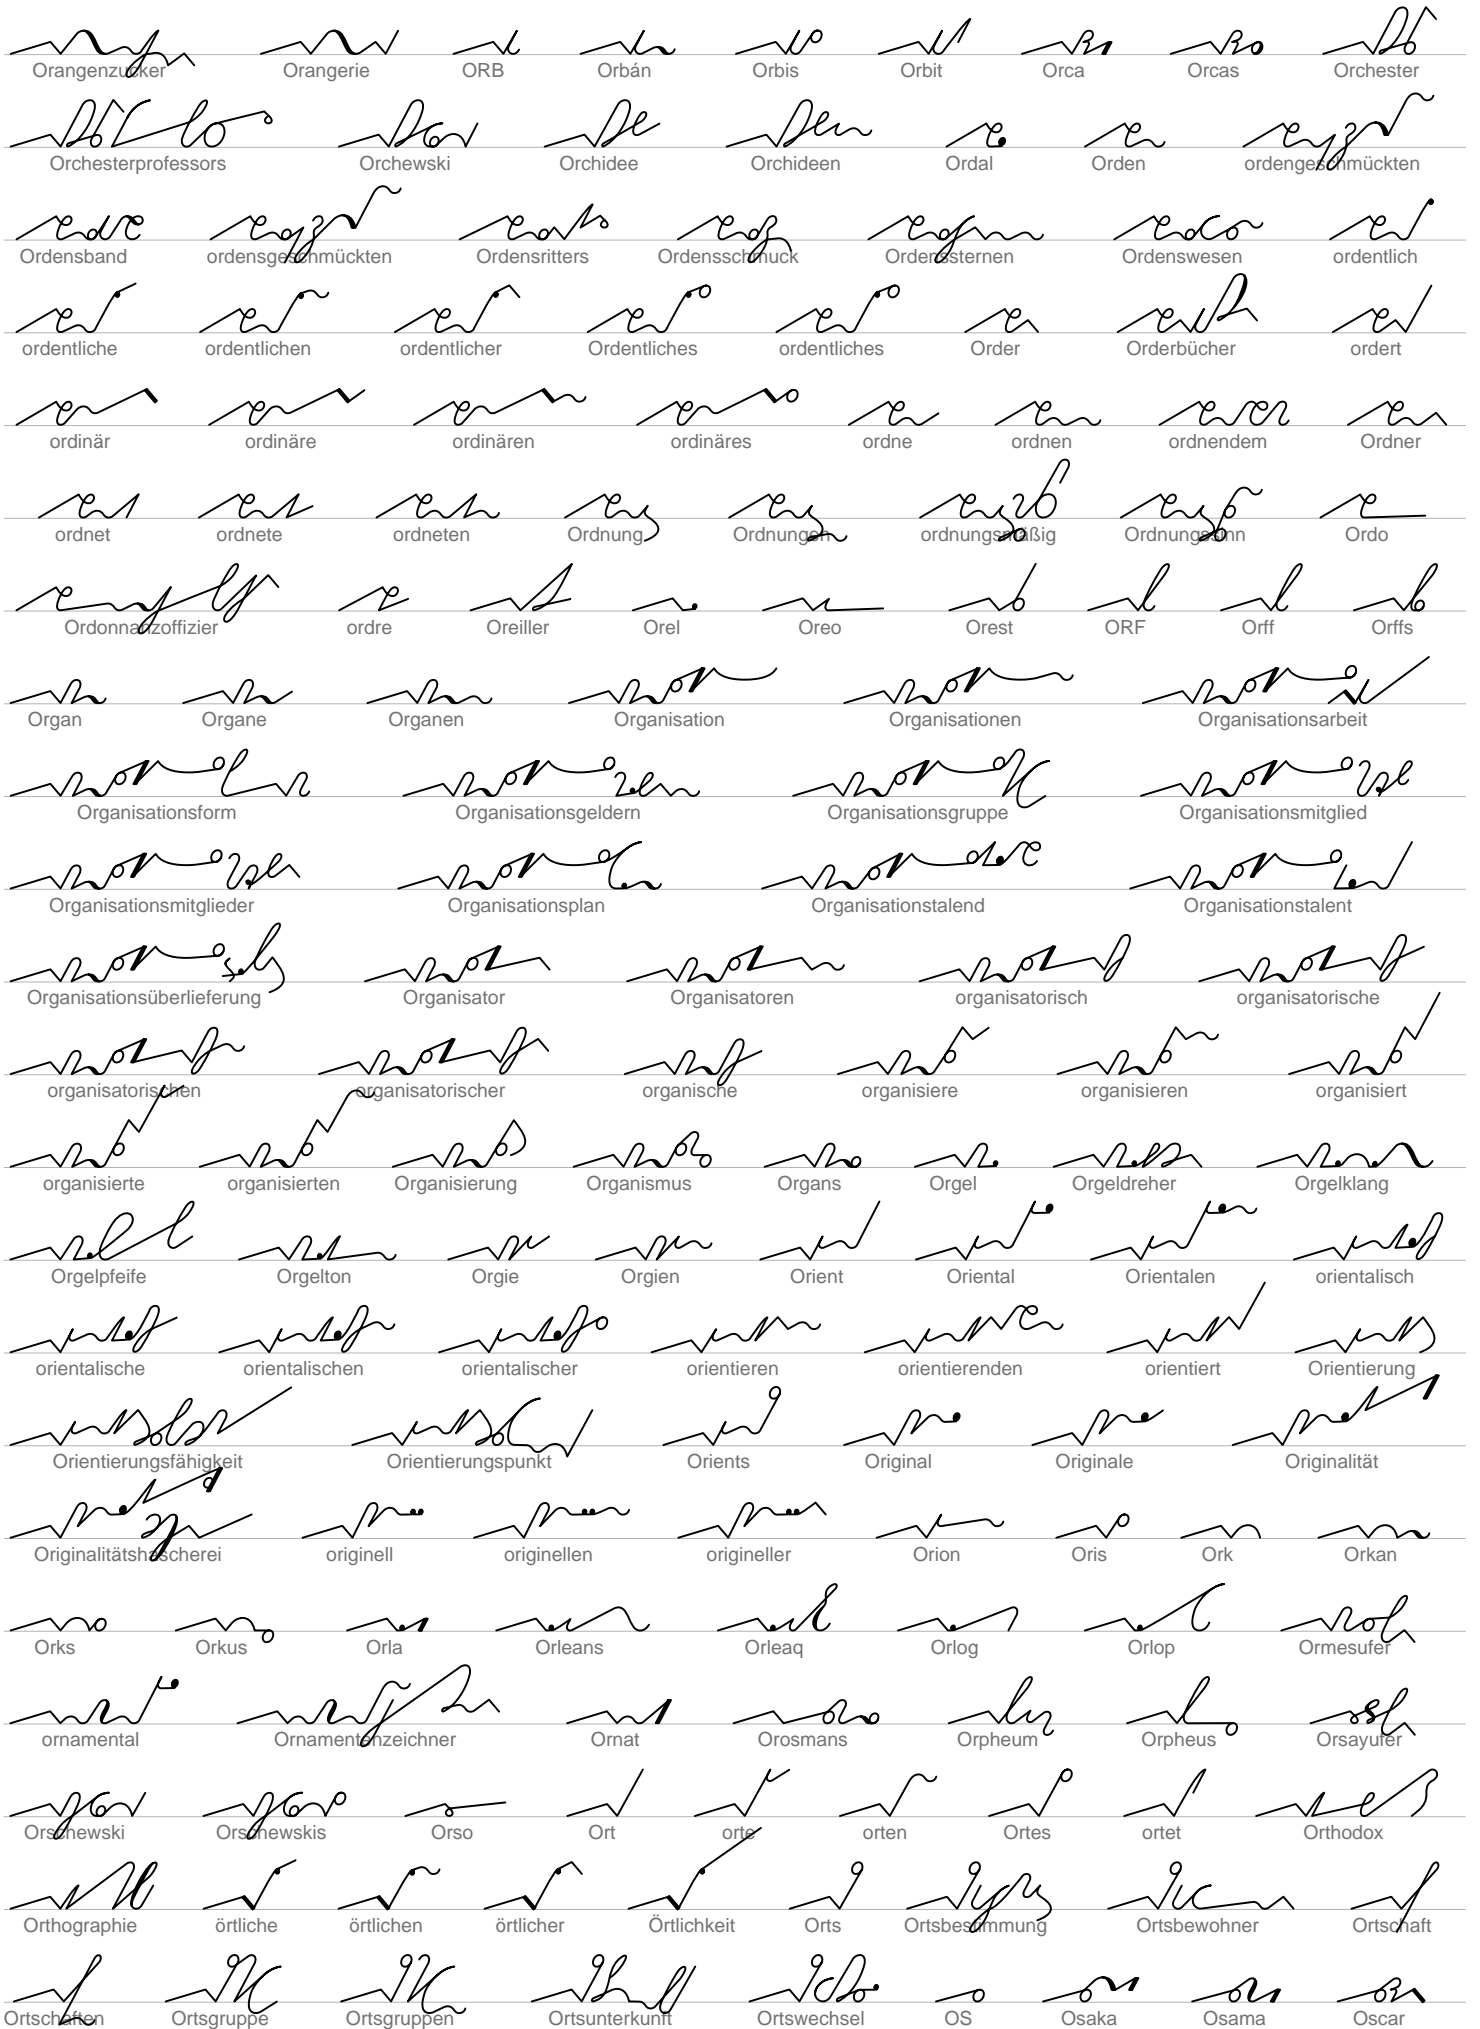 Orangenzucker Orangerie ORB Orbán Orbis Orbit Orca Orcas Orchester
Orchesterprofessors Orchewski Orchidee Orchideen Ordal Orden ordengeschmückten
Ordensband ordensgeschmückten Ordensritters Ordensschmuck Ordenssternen Ordenswesen ordentlich
ordentliche ordentlichen ordentlicher Ordentliches ordentliches Order Orderbücher ordert
ordinär ordinäre ordinären ordinäres ordne ordnen ordnendem Ordner
ordnet ordnete ordneten Ordnung Ordnungen ordnungsmäßig Ordnungssinn Ordo
Ordonnanzoffizier ordre Oreiller Orel Oreo Orest ORF Orff Orffs
Organ Organe Organen Organisation Organisationen Organisationsarbeit
Organisationsform Organisationsgeldern Organisationsgruppe Organisationsmitglied
Organisationsmitglieder Organisationsplan Organisationstalend Organisationstalent
Organisationsüberlieferung Organisator Organisatoren organisatorisch organisatorische
organisatorischen organisatorischer organische organisiere organisieren organisiert
organisierte organisierten Organisierung Organismus Organs Orgel Orgeldreher Orgelklang
Orgelpfeife Orgelton Orgie Orgien Orient Oriental Orientalen orientalisch
orientalische orientalischen orientalischer orientieren orientierenden orientiert Orientierung
Orientierungsfähigkeit Orientierungspunkt Orients Original Originale Originalität
Originalitätshascherei originell originellen origineller Orion Oris Ork Orkan
Orks Orkus Orla Orleans Orleaq Orlog Orlop Ormesufer
ornamental Ornamentenzeichner Ornat Orosmans Orpheum Orpheus Orsayufer
Orschewski Orschewskis Orso Ort orte orten Ortes ortet Orthodox
Orthographie örtliche örtlichen örtlicher Örtlichkeit Orts Ortsbestimmung Ortsbewohner Ortschaft
Ortschaften Ortsgruppe Ortsgruppen Ortsunterkunft Ortswechsel OS Osaka Osama Oscar